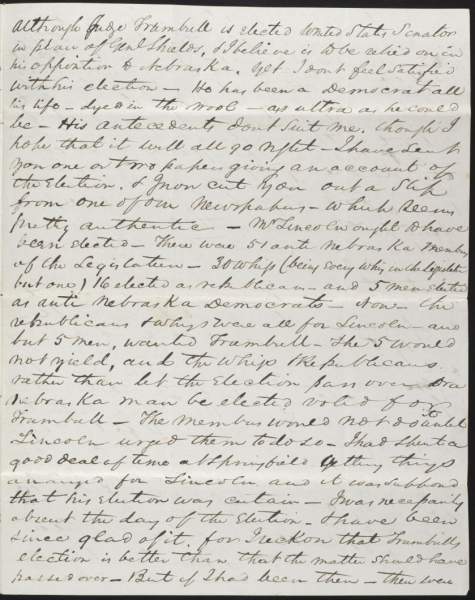 although Judge Trumbull is elected United States Senator
in place of Genl Shields, & I believe is to be relied on in
his opposition to Nebraska, yet I dont feel satisfied
with his election — He has been a Democrat all
his life — dyed in the wool — as ultra as he could
be — His antecedents dont suit me, though I
hope that it will all go right — I have sent
you one or two papers giving an account of
the Election. & I now cut you out a Slip
from one of our Newspapers — which seems
pretty authentic — Mr Lincoln ought to have
been elected — There were 51 anti Nebraska members
of the Legislature — 30 whigs (being every whig in the Legislature
but one) 16 elected as republicans — and 5 men elected
as anti Nebraska Democrats — Now — the
republicans & whigs were all for Lincoln — and
but 5 men, wanted Trumbull — The 5 would
not yield, and the Whigs & Republicans
rather than let the Election pass over or a
nebraska man be elected voted for
Trumbull — The members would not do it until
Lincoln urged them to do so — I had spent a
good deal of time at Springfield getting things
arranged for Lincoln and it was supposed
that his Election was certain — I was necessarily
absent the day of the Election — I have been
since glad of it, for I reckon that Trumbulls
election is better than that the matter should have
passed over — But if I had been there — there were